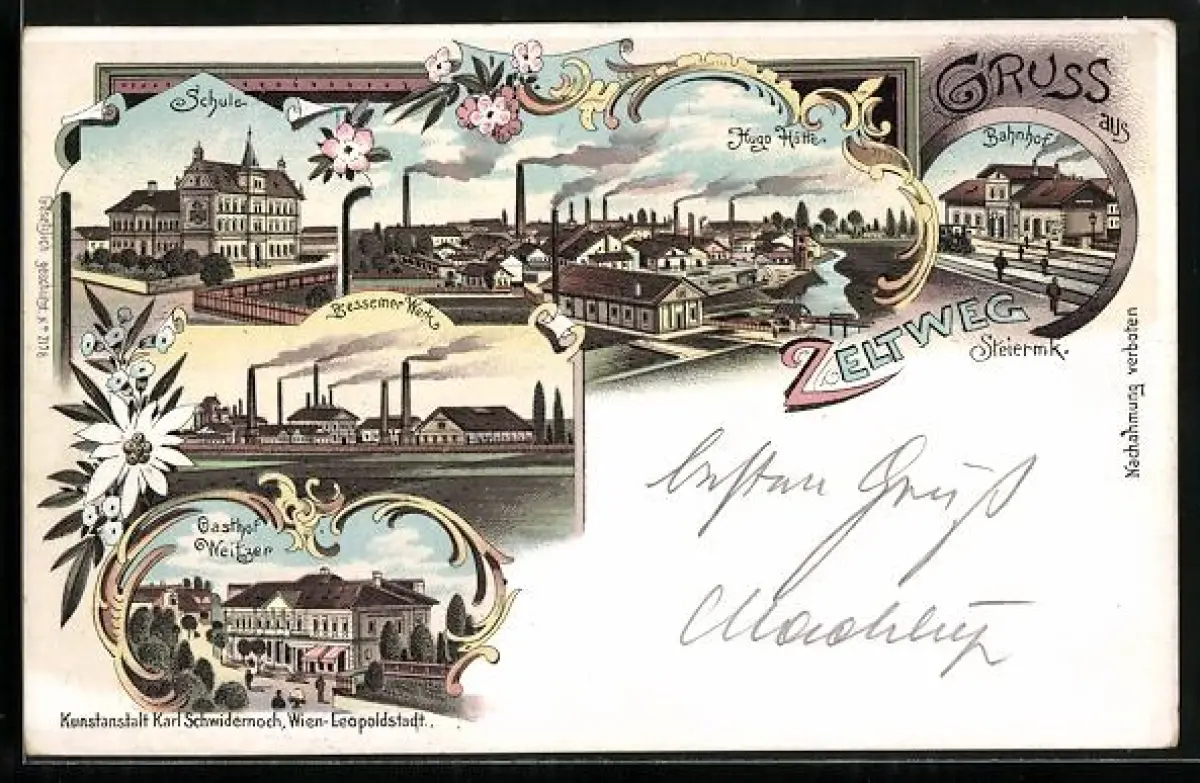 GRUSS
aus
ZELTWEG
Steiermk.
Schule.
Hugo Hütte.
Bahnhof
Bessemer Werk.
Gasthof
Weitzer
besten Gruß
Nachahmung verboten
Gesetzlich geschützt. No
Kunstanstalt Karl Schwidernoch, Wien-Leopoldstadt.